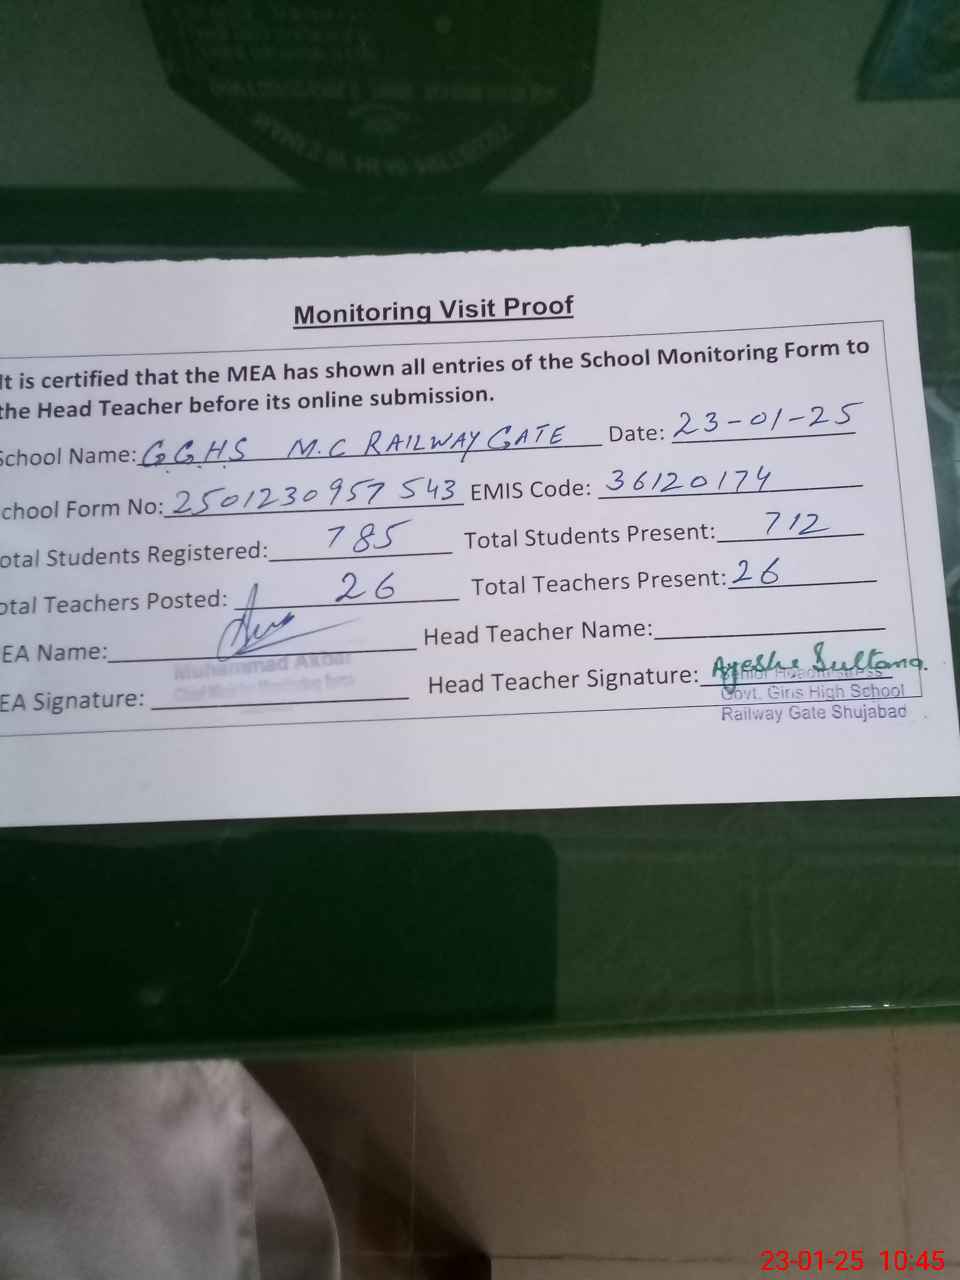 Monitoring Visit Proof
It is certified that the MEA has shown all entries of the School Monitoring Form to
the Head Teacher before its online submission.
School Name: GGHS M.C RAILWAY GATE Date: 23-01-25
chool Form No: 2501230957543 EMIS Code: 36120174
otal Students Registered: 785 Total Students Present: 712
otal Teachers Posted: 26 Total Teachers Present: 26
EA Name: Head Teacher Name:
Muhammad Akbar
EA Signature: Head Teacher Signature: Ayesha Sultana.
Senior Headmistress
Govt. Girls High School
Railway Gate Shujabad
23-01-25 10:45